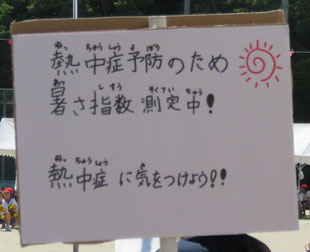 熱中症予防のため
暑さ指数測定中!
熱中症に気をつけよう!!